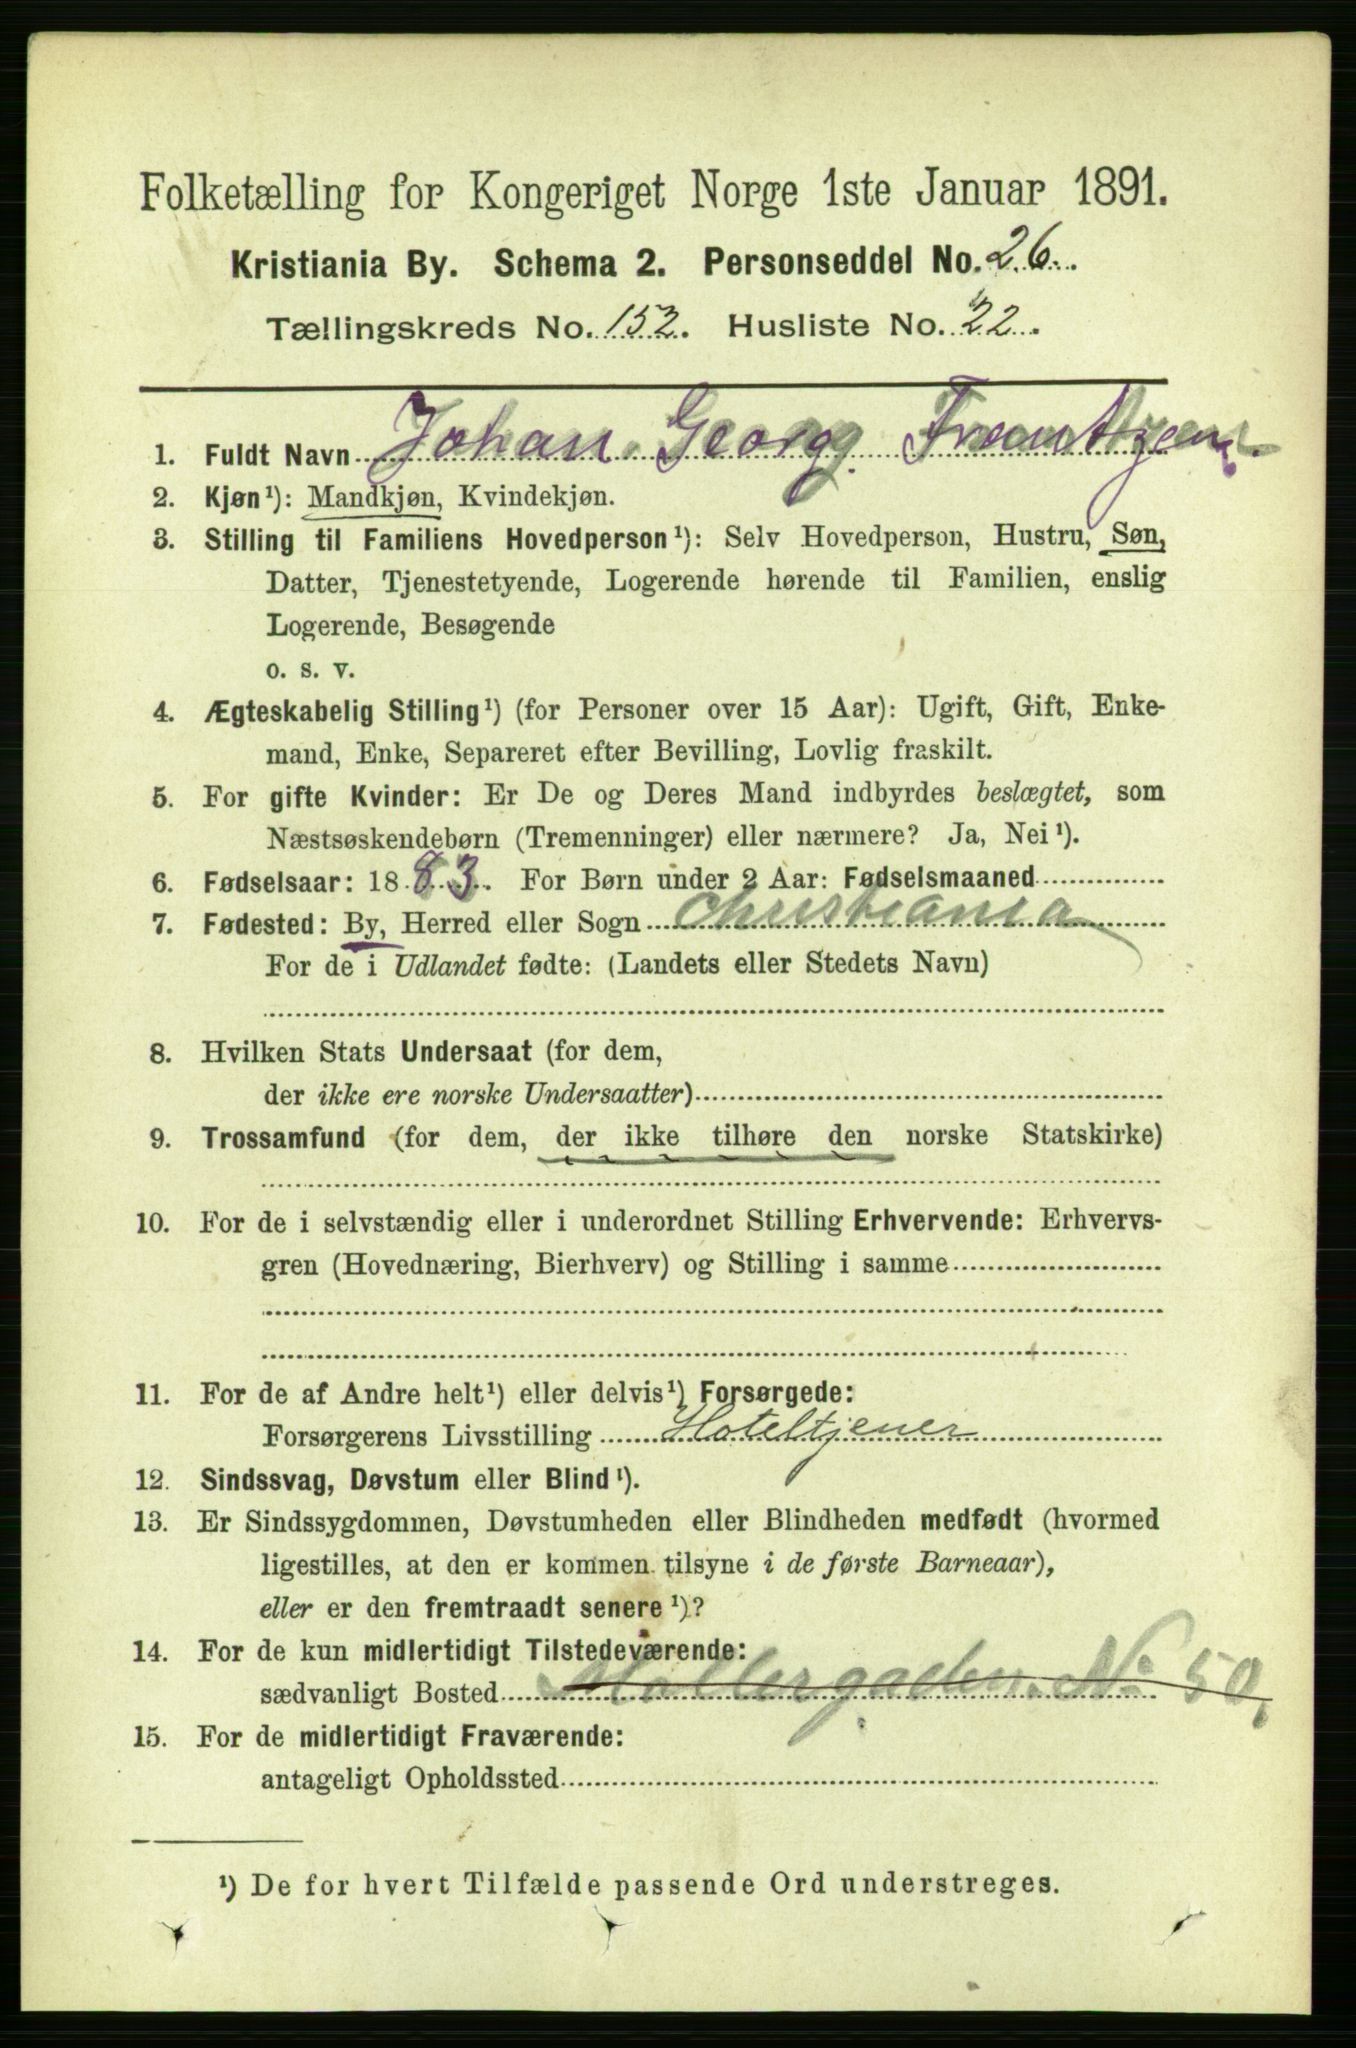 Folketælling for Kongeriget Norge 1ste Januar 1891.
Kristiania By. Schema 2. Personseddel No. 26.
Tællingskreds No. 152. Husliste No. 22.
1. Fuldt Navn Johan Georg
2. Kjøn¹): Mandkjøn, Kvindekjøn.
3. Stilling til Familiens Hovedperson¹): Selv Hovedperson, Hustru, Søn,
Datter, Tjenestetyende, Logerende hørende til Familien, enslig
Logerende, Besøgende
o. s. v.
4. Ægteskabelig Stilling¹) (for Personer over 15 Aar): Ugift, Gift, Enke-
mand, Enke, Separeret efter Bevilling, Lovlig fraskilt.
5. For gifte Kvinder: Er De og Deres Mand indbyrdes beslægtet, som
Næstsøskendebørn (Tremenninger) eller nærmere? Ja, Nei¹).
6. Fødselsaar: 1883. For Børn under 2 Aar: Fødselsmaaned
7. Fødested: By, Herred eller Sogn Christiania
For de i Udlandet fødte: (Landets eller Stedets Navn)
8. Hvilken Stats Undersaat (for dem,
der ikke ere norske Undersaatter)
9. Trossamfund (for dem, der ikke tilhøre den norske Statskirke)
10. For de i selvstændig eller i underordnet Stilling Erhvervende: Erhvervs-
gren (Hovednæring, Bierhverv) og Stilling i samme
11. For de af Andre helt¹) eller delvis¹) Forsørgede:
Forsørgerens Livsstilling Hoteltjener
12. Sindssvag, Døvstum eller Blind¹).
13. Er Sindssygdommen, Døvstumheden eller Blindheden medfødt (hvormed
ligestilles, at den er kommen tilsyne i de første Barneaar),
eller er den fremtraadt senere¹)?
14. For de kun midlertidigt Tilstedeværende:
sædvanligt Bosted Møllergaden. No 50,
15. For de midlertidigt Fraværende:
antageligt Opholdssted
¹) De for hvert Tilfælde passende Ord understreges.